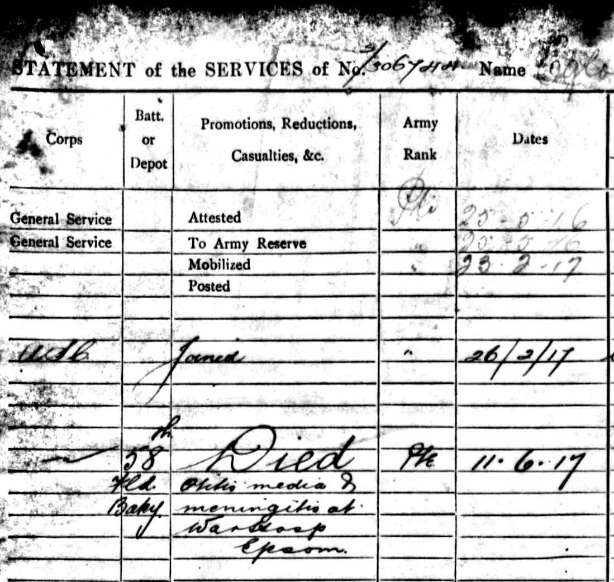 STATEMENT of the SERVICES of No. Name
Corps
Batt.
or
Depot
Promotions, Reductions,
Casualties, &c.
Army
Rank
Dates
General Service Attested Pte 25-5-16
General Service To Army Reserve "
Mobilized " 23.2.17
Posted
Joined " 26/2/17
58th Died Pte 11.6.17
Fld. Otitis media &
Baky. meningitis at
War Hosp
Epsom.